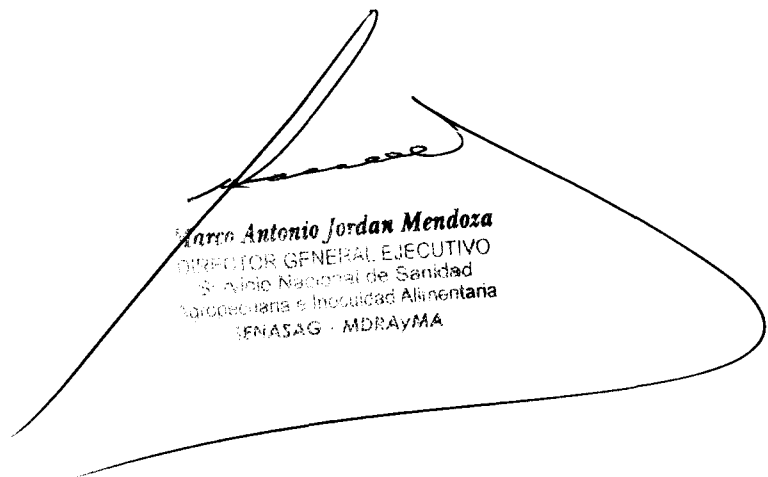 Marco Antonio Jordan Mendoza
DIRECTOR GENERAL EJECUTIVO
Servicio Nacional de Sanidad
Agropecuaria e Inocuidad Alimentaria
SENASAG - MDRAyMA